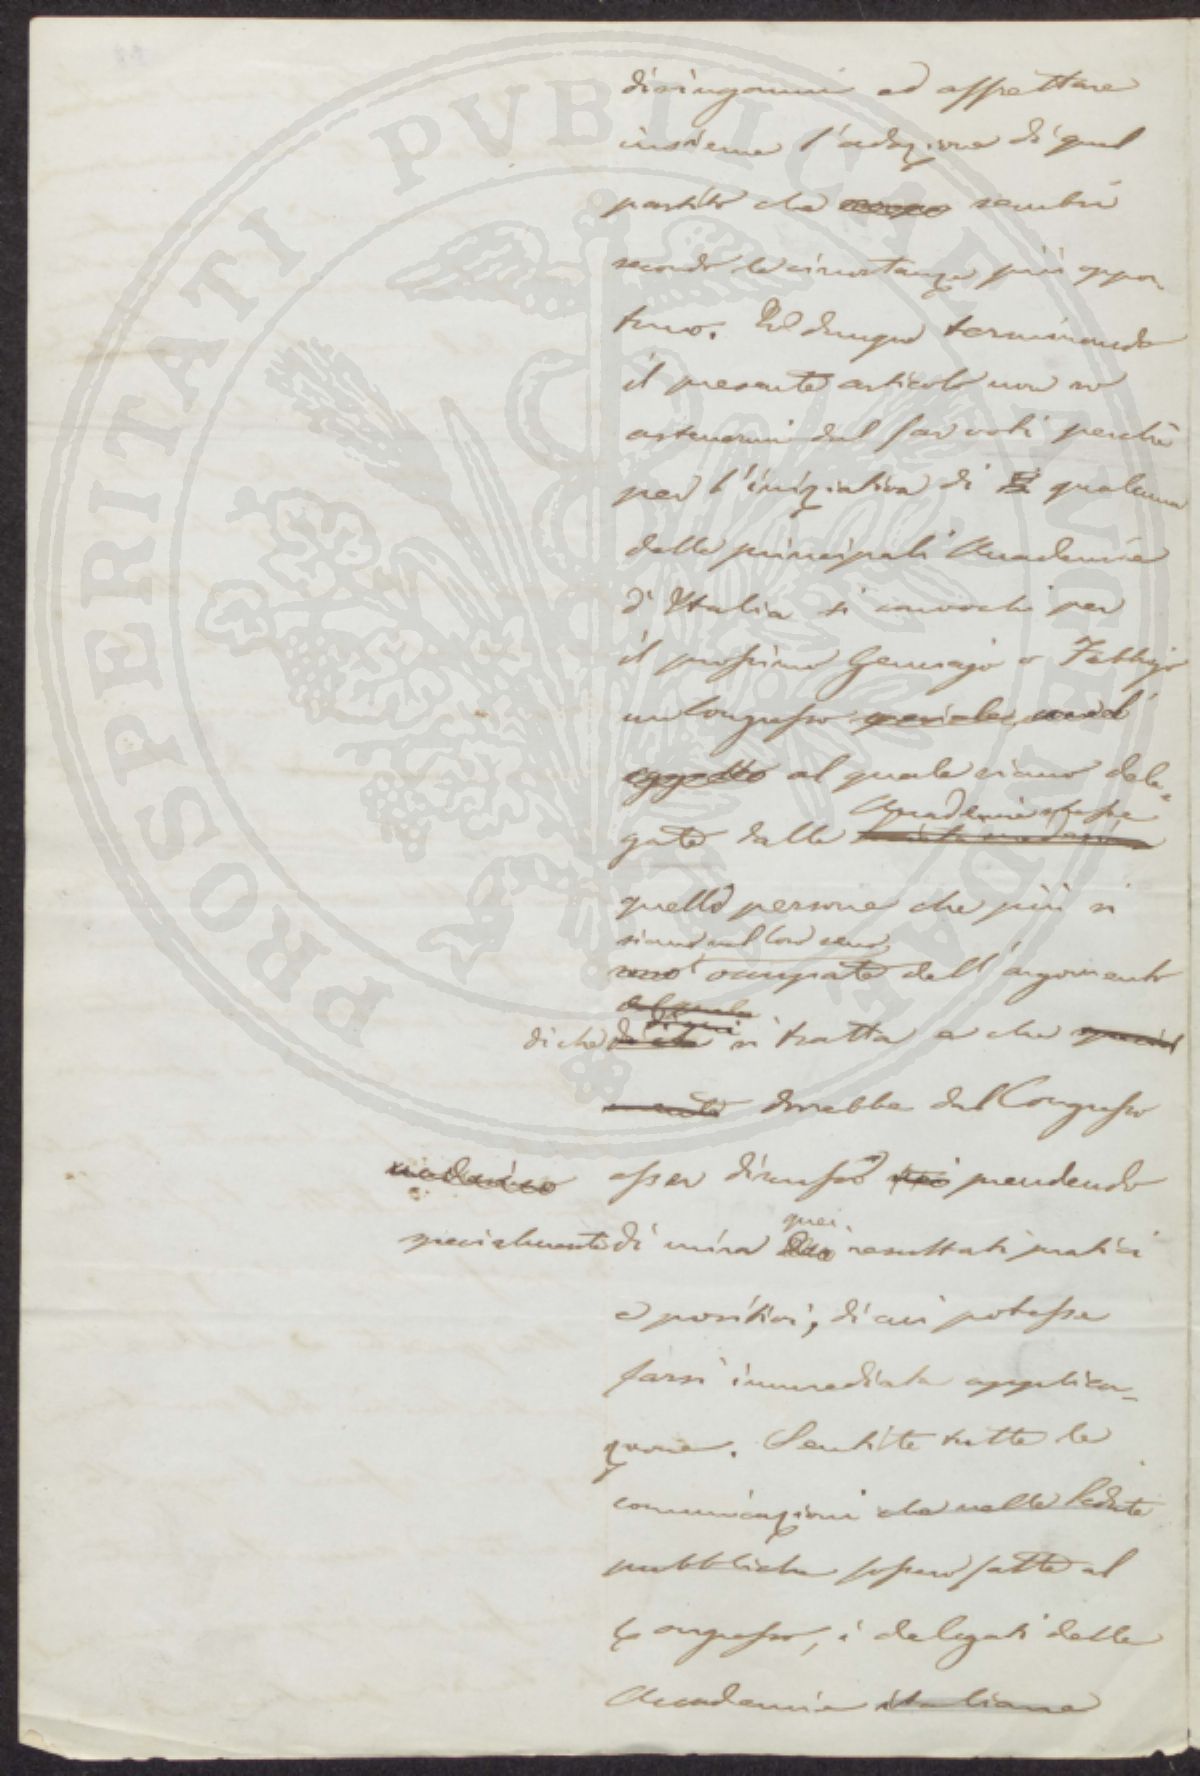 disinganni ad affrettare
insieme l'adozione di quel
partito che sembri
secondo le circostanze più oppor-
tuno. Ed dunque terminando
il presente articolo non so
astenermi dal far voti perchè
per l'iniziativa di qualcuna
delle principali Accademie
d'Italia si convochi per
il prossimo Gennajo o Febbrajo
un Congresso speciale
oggetto al quale siano dele-
Accademie stesse
gate dalle
quelle persone che più si
siano nel loro seno
occupate dell'argomento
di cui
di che si tratta e che
dovrebbe dal Congresso
medesimo esser discusso prendendo
quei
specialmente di mira resultati pratici
e positivi, di cui potesse
farsi immediata applica-
zione. Sentite tutte le
comunicazioni che nelle Sedute
pubbliche fossero fatte al
Congresso, i delegati delle
Accademie italiane
PROSPERITATI PVBLICAE AVGENDAE